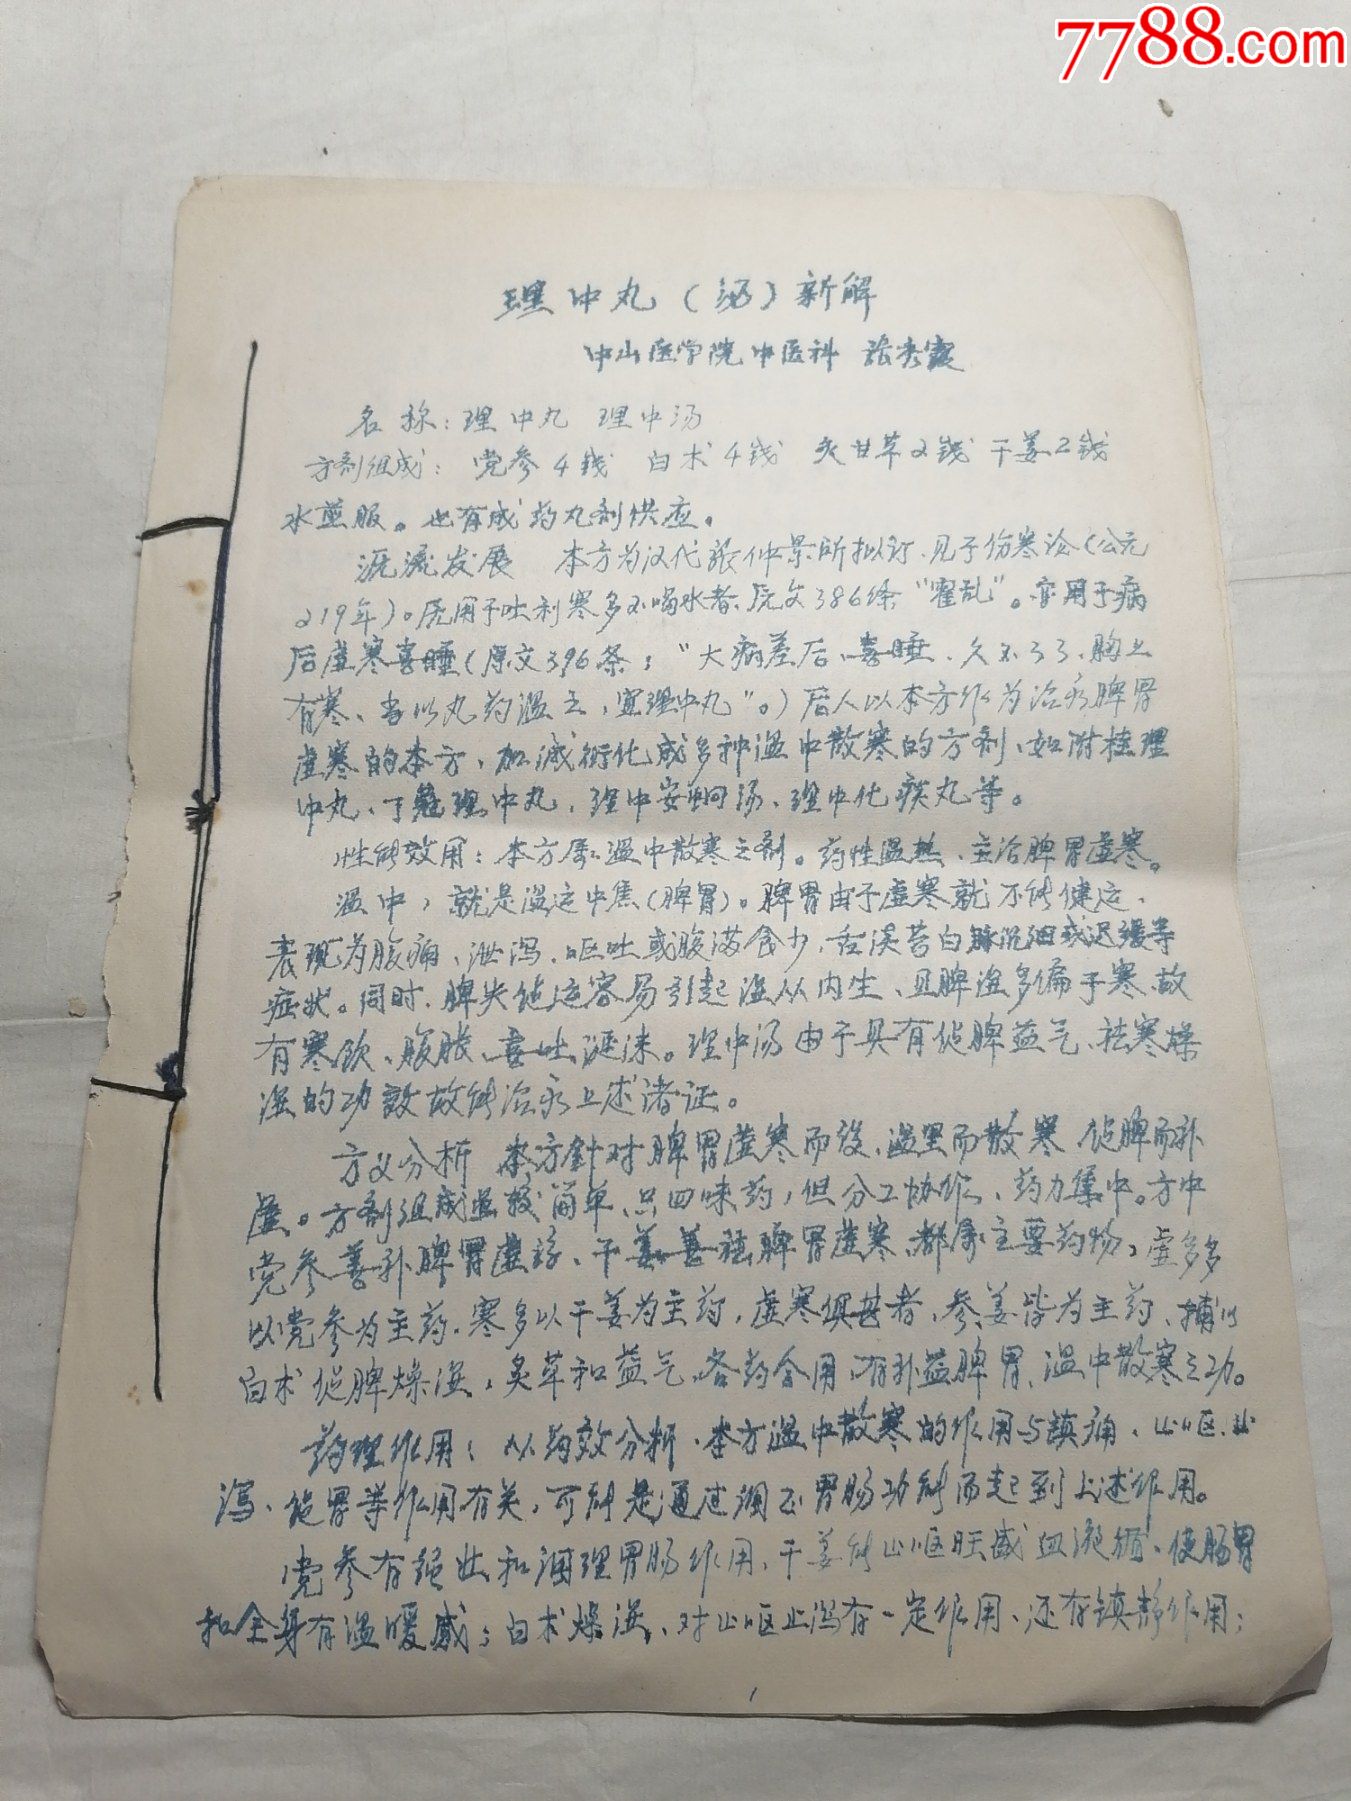 7788.com
理中丸（汤）新解
中山医学院中医科 张孝霞
名称：理中丸 理中汤
方剂组成：党参4钱 白术4钱 炙甘草2钱 干姜2钱
水煎服。也有成药丸剂供应。
源流发展 本方为汉代张仲景所拟订、见于伤寒论（公元
219年）。原用于吐利寒多不喝水者、原文386条“霍乱”。亦用于病
后虚寒喜唾（原文396条：“大病差后、喜唾、久不了了、胸上
有寒、当以丸药温之，宜理中丸”。）后人以本方作为治疗脾胃
虚寒的本方，加减衍化成多种温中散寒的方剂，如附桂理
中丸、丁蔻理中丸，理中安蛔汤、理中化痰丸等。
性能效用：本方属温中散寒之剂。药性温热、主治脾胃虚寒。
温中，就是温运中焦（脾胃）。脾胃由于虚寒就不能健运、
表现为腹痛、泄泻、呕吐或腹满食少，舌淡苔白脉沉细或迟缓等
症状。同时，脾失健运容易引起湿从内生、且脾湿多偏于寒、故
有寒饮、腹胀、喜吐涎沫。理中汤由于具有健脾益气、祛寒燥
湿的功效故能治疗上述诸证。
方义分析 本方针对脾胃虚寒而设、温里而散寒 健脾而补
虚。方剂组成虽较简单、只四味药，但分工协作、药力集中。方中
党参善补脾胃虚弱、干姜善祛脾胃虚寒、都属主要药物，虚多多
以党参为主药，寒多以干姜为主药，虚寒俱甚者，参姜皆为主药、辅以
白术健脾燥湿，炙草和益气、各药合用、有补益脾胃、温中散寒之功。
药理作用：从药效分析、本方温中散寒的作用与镇痛、止呕、止
泻、健胃等作用有关，可能是通过调正胃肠功能而起到上述作用。
党参有强壮和调理胃肠作用、干姜能止呕旺盛血液循、使肠胃
和全身有温暖感；白术燥湿、对止呕止泻有一定作用、还有镇静作用；
1